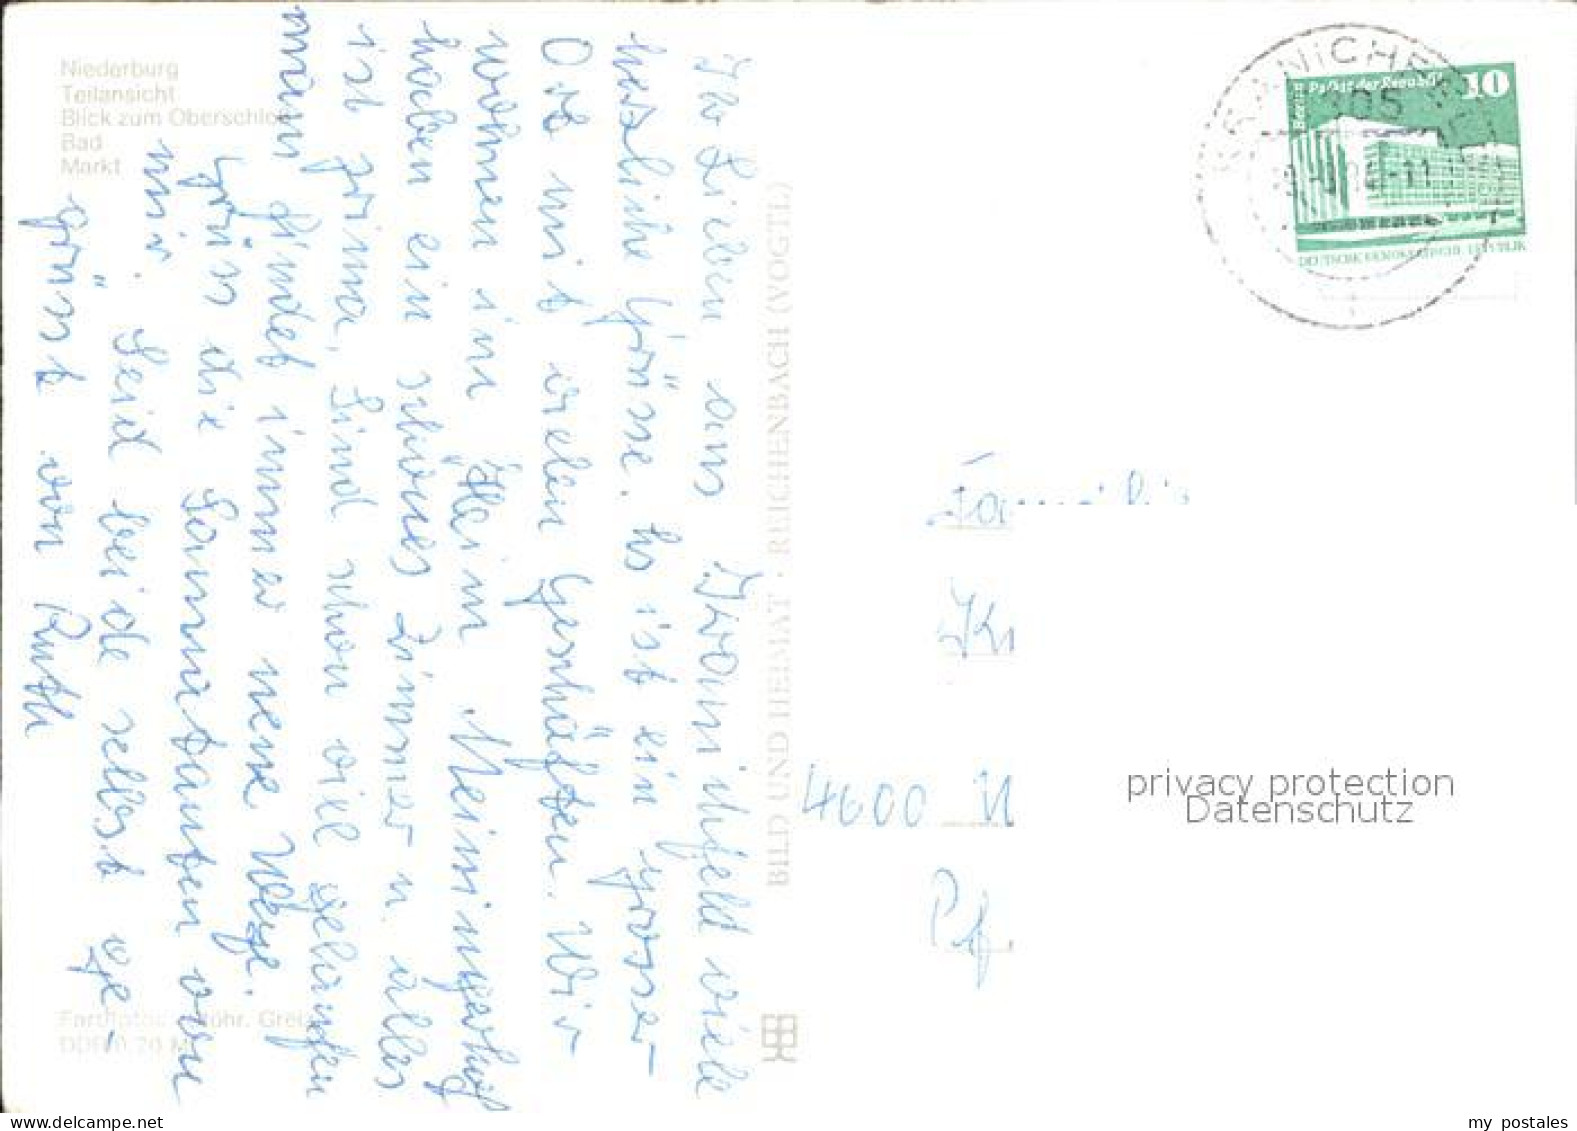 Niederburg
Teilansicht
Blick zum Oberschloß
Bad
Markt
Ihr Lieben aus Kranichfeld viele
herzliche Grüsse. Es ist ein grosser
Ort mit vielen Geschäften. Wir
wohnen im Heim "Meiningerhof"
haben ein schönes Zimmer u. alles
ist prima. Sind schon viel gelaufen
man findet immer neue Wege.
Grüss die Sonnetanten von
mir. Seid beide selbst ge-
grüsst von Ruth
Farbfotos: Röhr, Greiz
DDR 0,20 M
BILD UND HEIMAT · REICHENBACH (VOGTL)
KRANICHFELD
Berlin Palast der Republik 10
DEUTSCHE DEMOKRATISCHE REPUBLIK
Familie
Kr
4600 W
privacy protection
Datenschutz
my postales
www.delcampe.net